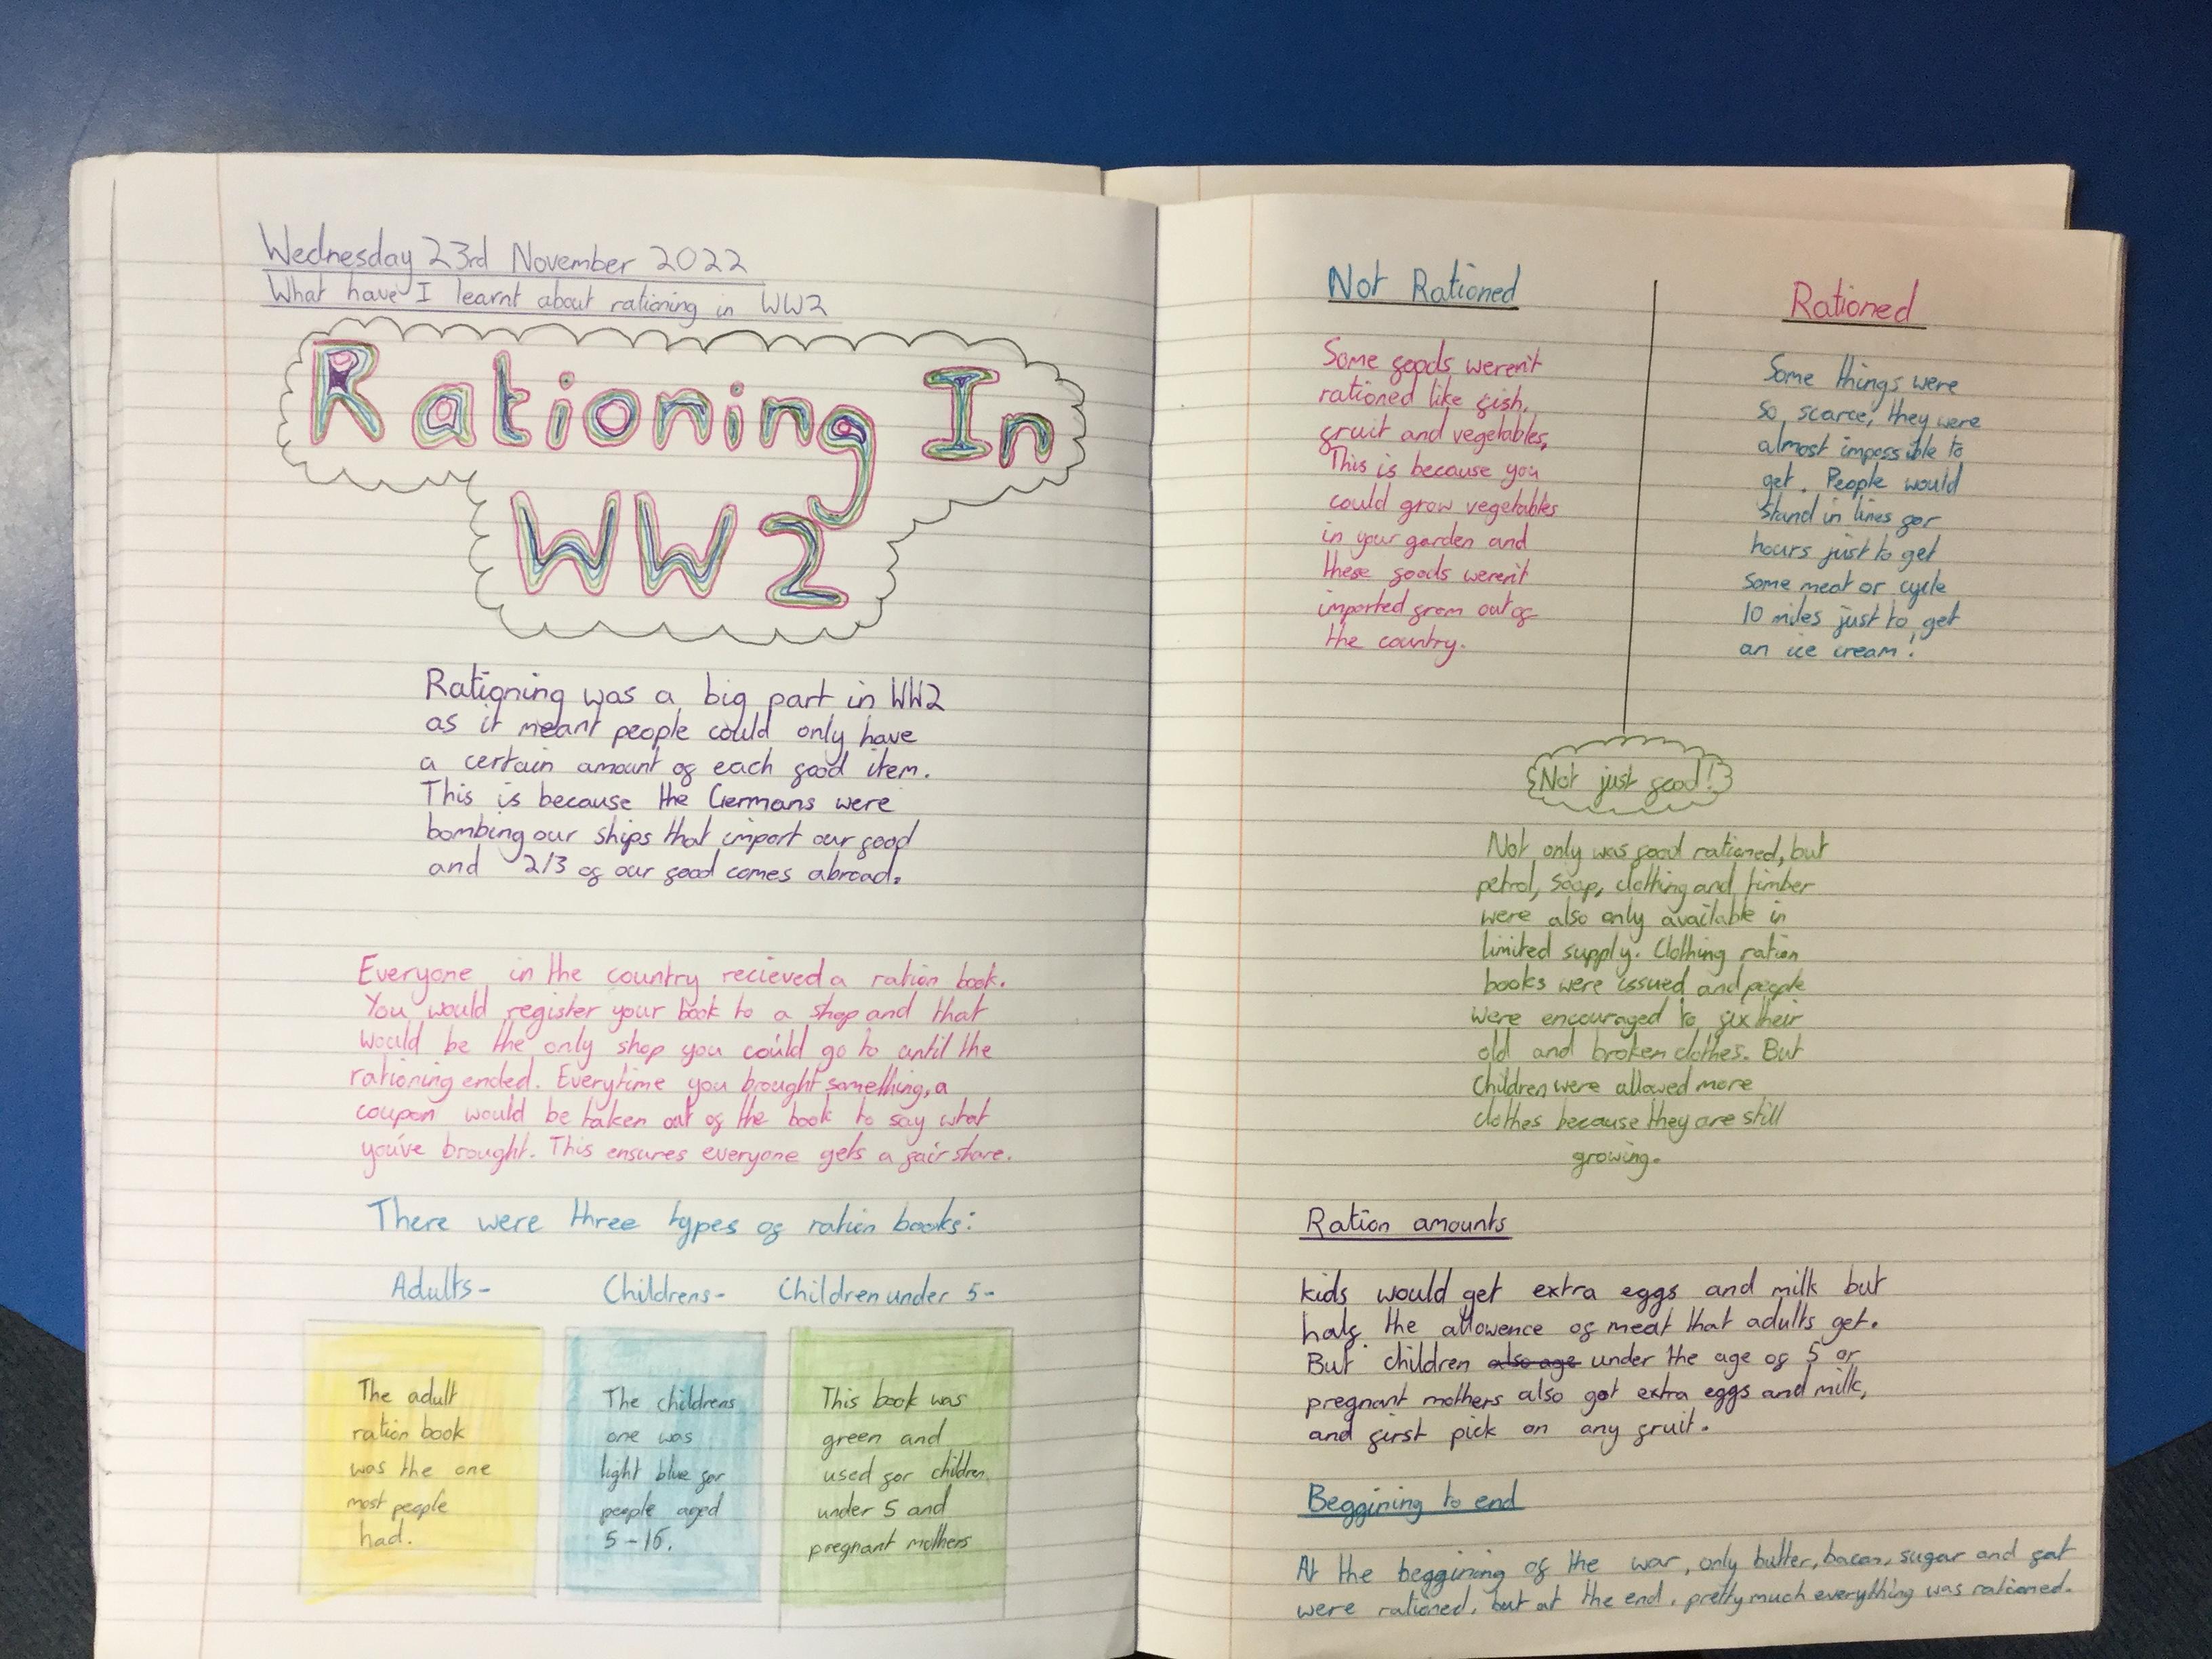 Wednesday 23rd November 2022
What have I learnt about rationing in WW2
Rationing In
WW2
Rationing was a big part in WW2
as it meant people could only have
a certain amount of each food item.
This is because the Germans were
bombing our ships that import our food
and 2/3 of our food comes abroad.
Everyone in the country recieved a ration book.
You would register your book to a shop and that
would be the only shop you could go to until the
rationing ended. Everytime you brought something, a
coupon would be taken out of the book to say what
you've brought. This ensures everyone gets a fair share.
There were three types of ration books:
Adults-
Childrens-
Children under 5-
The adult
ration book
was the one
most people
had.
The childrens
one was
light blue for
people aged
5-16.
This book was
green and
used for children
under 5 and
pregnant mothers
Not Rationed
Some foods weren't
rationed like fish,
fruit and vegetables,
This is because you
could grow vegetables
in your garden and
these foods weren't
imported from out of
the country.
Rationed
Some things were
so scarce, they were
almost impossible to
get. People would
stand in lines for
hours just to get
some meat or cycle
10 miles just to get
an ice cream!
Not just food!
Not only was food rationed, but
petrol, soap, clothing and timber
were also only available in
limited supply. Clothing ration
books were issued and people
were encouraged to fix their
old and broken clothes. But
children were allowed more
clothes because they are still
growing.
Ration amounts
kids would get extra eggs and milk but
half the allowence of meat that adults get.
But children also age under the age of 5 or
pregnant mothers also got extra eggs and milk,
and first pick on any fruit.
Beggining to end
At the beggining of the war, only butter, bacon, sugar and fat
were rationed, but at the end, pretty much everything was rationed.